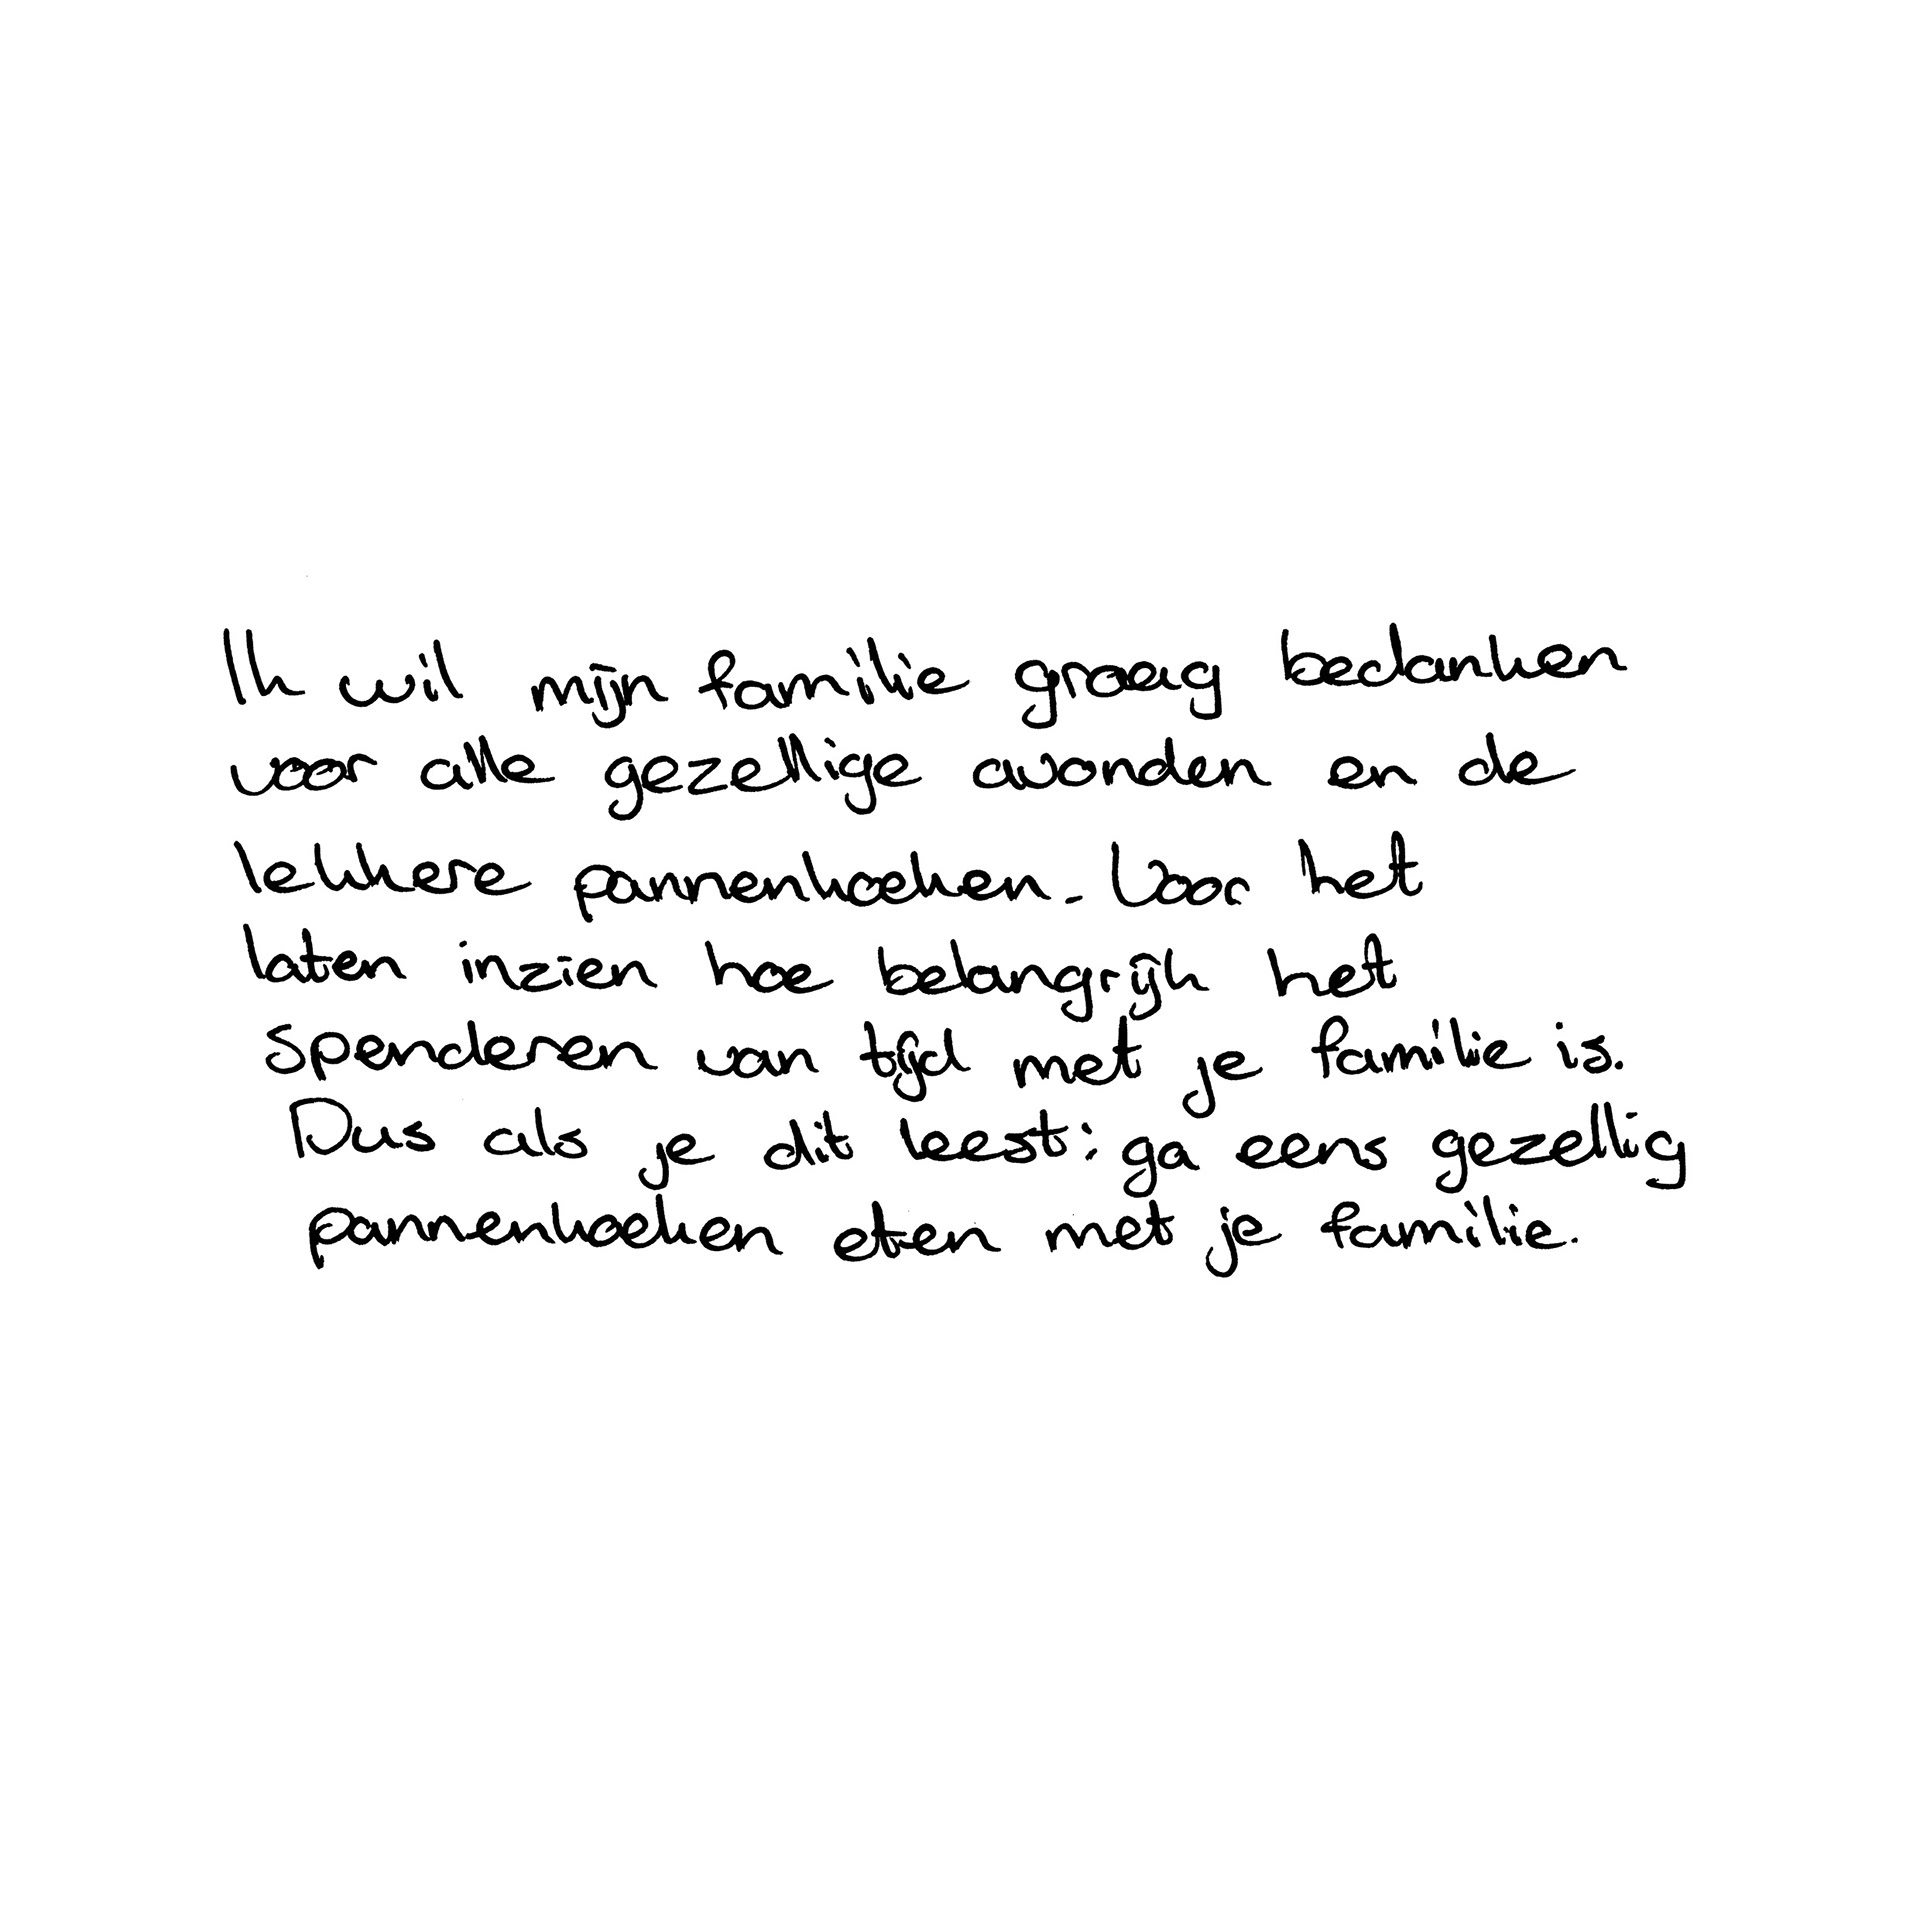 Ik wil mijn familie graag bedanken
voor alle gezellige avonden en de
lekkere pannenkoeken. Voor het
laten inzien hoe belangrijk het
spenderen van tijd met je familie is.
Dus als je dit leest: ga eens gezellig
pannenkoeken eten met je familie.